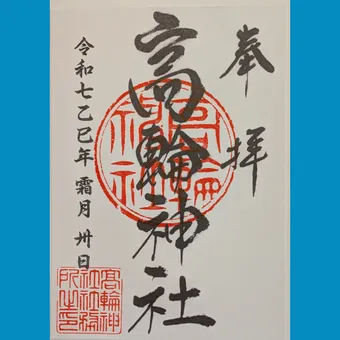 奉拝
高輪神社
令和七乙巳年 霜月 卅日
高輪神社
高輪神
社社務
所之印